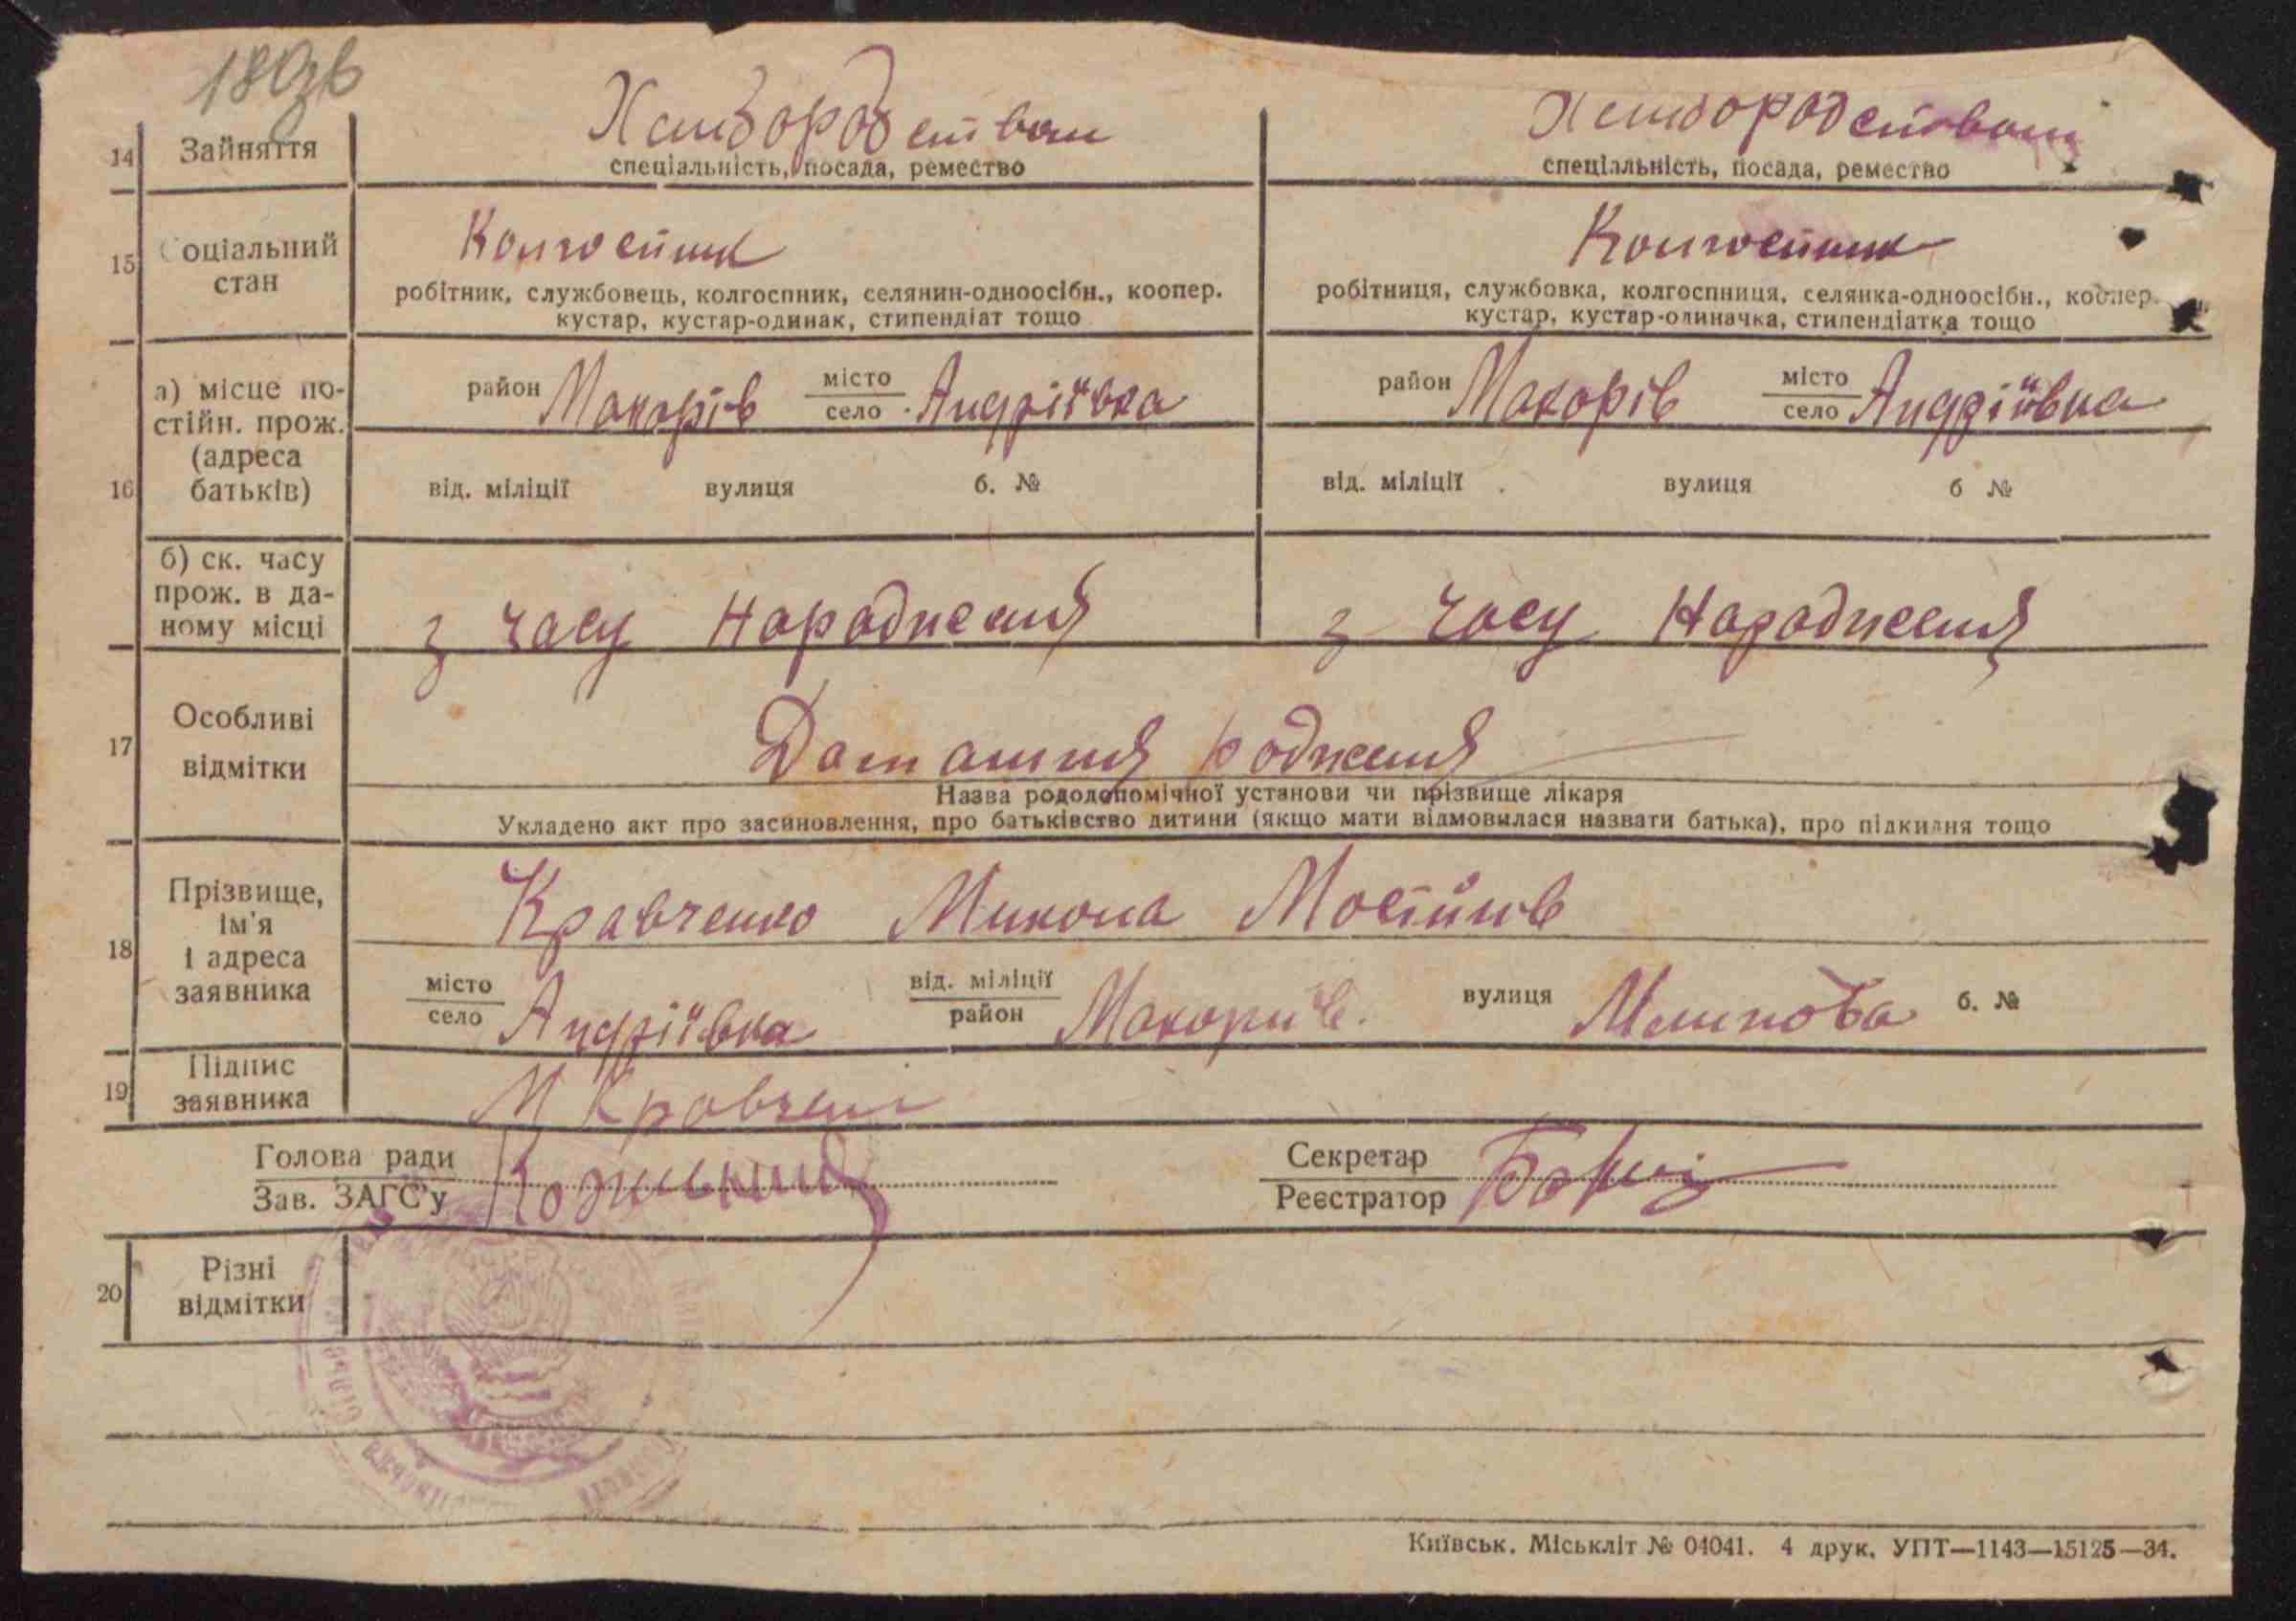 180зв
14 Зайняття
Хліборобством Хліборобством
спеціальність, посада, ремество спеціальність, посада, ремество
15 Соціальний стан
Колгоспник Колгоспник
робітник, службовець, колгоспник, селянин-одноосібн., коопер. робітниця, службовка, колгоспниця, селянка-одноосібн., коопер.
кустар, кустар-одинак, стипендіат тощо кустар, кустар-одиначка, стипендіатка тощо
16 а) місце постійн. прож. (адреса батьків)
район Макарів місто село Андріївка район Макарів місто село Андріївка
від. міліції вулиця б. № від. міліції вулиця б №
б) ск. часу прож. в даному місці
з часу народження з часу народження
17 Особливі відмітки
Домашня родження
Назва рододопомічної установи чи прізвище лікаря
Укладено акт про засиновлення, про батьківство дитини (якщо мати відмовилася назвати батька), про підкидня тощо
18 Прізвище, ім'я і адреса заявника
Кравченко Микола
місто село Андріївка від. міліції район Макорив. вулиця б. №
19 Підпис заявника
М Кравченко
Голова ради Секретар
Зав. ЗАГС'у Реєстратор
20 Різні відмітки
Київськ. Міськліт № 04041. 4 друк. УПТ—1143—15125—34.